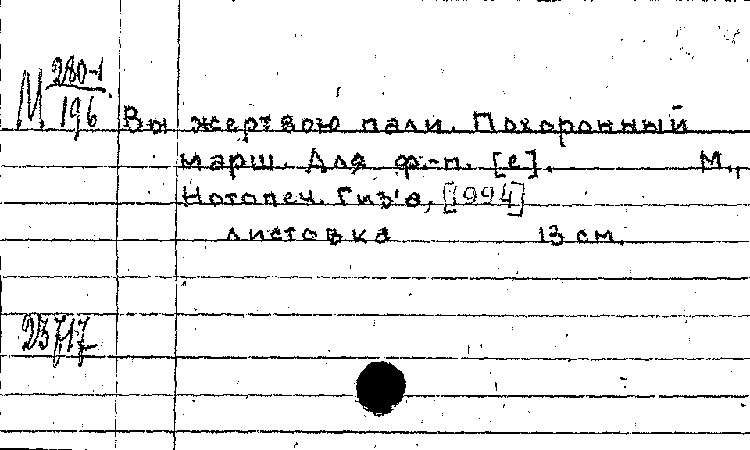 М 280-1
196
Вы жертвою пали. Похоронный
марш. Для ф.-п. [е]. М.,
Нотопеч. Гиз'а, [1994]
листовка 13 см.
23717